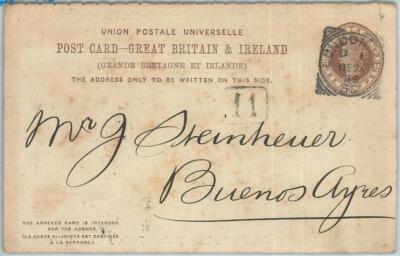 UNION POSTALE UNIVERSELLE
POST CARD—GREAT BRITAIN & IRELAND
(GRANDE BRETAGNE ET IRLANDE)
THE ADDRESS ONLY TO BE WRITTEN ON THIS SIDE.
11
Mr J Steinheuer
Buenos Ayres
THE ANNEXED CARD IS INTENDED
FOR THE ANSWER.
(LA CARTE CI-JOINTE EST DESTINÉE
À LA RÉPONSE.)